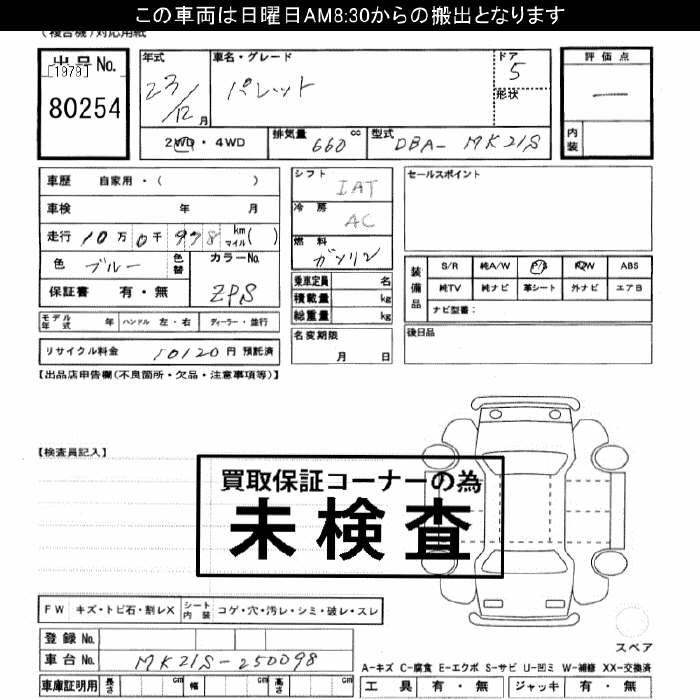 この車両は日曜日AM8:30からの搬出となります
(複合機)対応用紙
出品No. [1979] 80254
年式 23/12月
車名・グレード パレット
ドア 5
形状
評価点 —
内装
2WD・4WD
排気量 660 cc
型式 DBA-MK21S
車歴 自家用・( )
車検 年 月
走行 10万0千998 km マイル( )
色 ブルー 色替
カラーNo. ZPS
保証書 有・無
モデル年式 年 ハンドル 左・右 ディーラー・並行
リサイクル料金 10120円 預託済
シフト IAT
冷房 AC
燃料 ガソリン
乗車定員 名
積載量 kg
総重量 kg
名変期限 月 日
セールスポイント
装備品 S/R 純A/W P/S P/W ABS
純TV 純ナビ 革シート 外ナビ エアB
ナビ型番:
後日品
【出品店申告欄(不良箇所・欠品・注意事項等)】
【検査員記入】
買取保証コーナーの為
未検査
FW キズ・トビ石・割レX シート内装 コゲ・穴・汚レ・シミ・破レ・スレ
スペア
登録No.
車台No. MK21S-250098
車庫証明用 長さ cm 幅 cm 高さ cm
A-キズ C-腐食 E-エクボ S-サビ U-凹ミ W-補修 XX-交換済
工具 有・無 ジャッキ 有・無